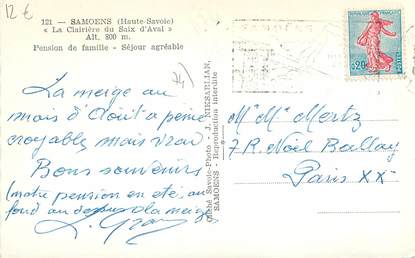 12 €
121 — SAMOENS (Haute-Savoie)
« La Clairière du Saix d'Aval »
Alt. 800 m.
Pension de famille - Séjour agréable
74
La neige au
mois d'Août à peine
croyable, mais vrai
Bons souvenirs
(notre pension en été, au
fond au dessous la neige
Cliché Savoie-Photo - J. NIKSARLIAN,
SAMOENS - Reproduction interdite
REPUBLIQUE FRANCAISE
0,20
POSTES
Mr Mme Mertz
7 R. Noël Ballay
Paris XX